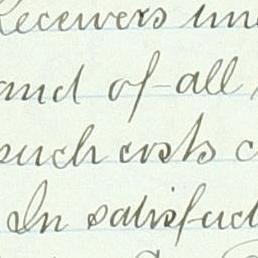 Receivers un
and of all
such costs c
In satisfact